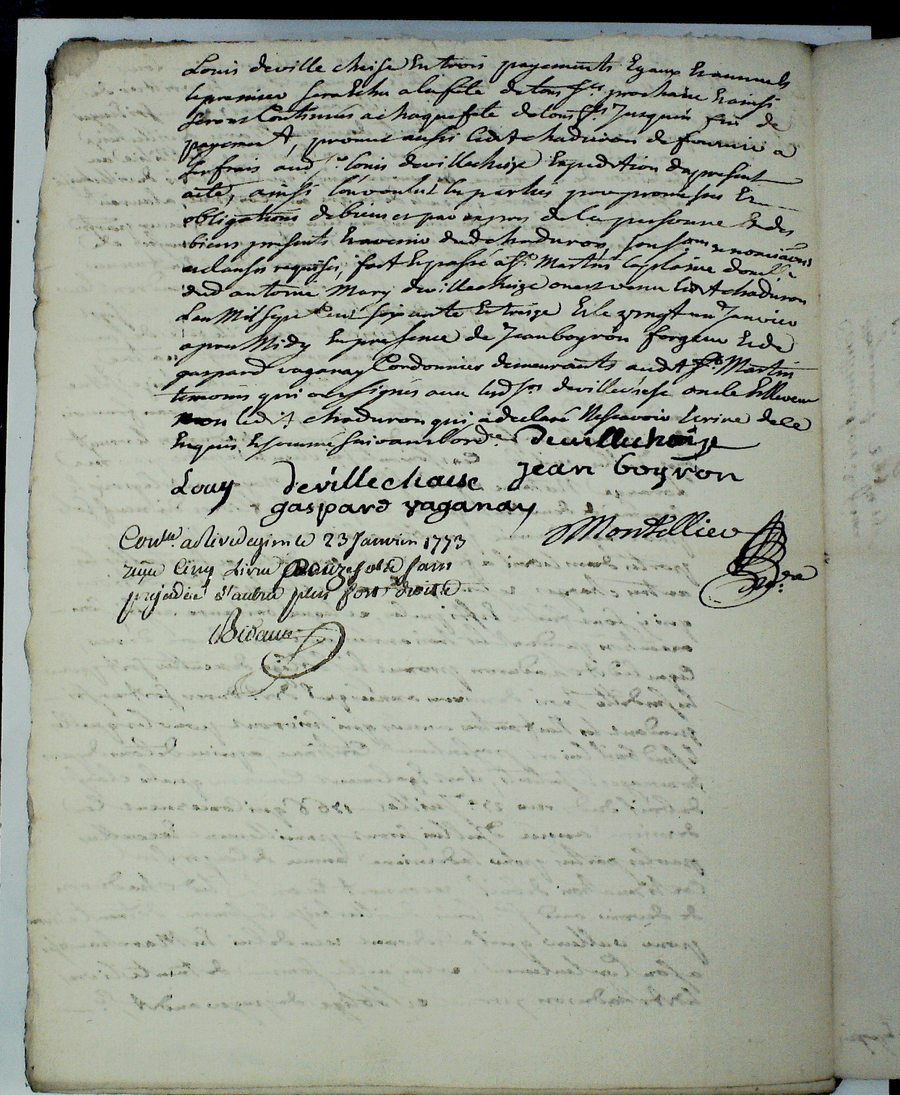 Louis deville chaise En trois payements Egaux Et annuels
le premier sera Echu a la fête de tous Sts prochaine Et ainsi
seront Continués a chaque fete de tous Sts Jusquau fin de
payement, promet aussi led. chaduron de fournir a
ses frais aud. sr. Louis devillechaize Expedition du present
acte, ainsi l'ont voulu les parties par promesses Et
obligations de biens et par expres de la personne Et des
biens presents Et avenir dud chaduron, sous renonciations
et clauses requises, fait Et passé a St. Martin la plaine domlle.
dud antoine Mary devillechaize ou est venu led. chaduron
Lan Mil Sept Cent soixante Et treize Et le vingt un Janvier
apres Midy En presence de Jean boyron forgeur Et de
gaspard vaganay Cordonnier demeurants aud. St Martin
temoins qui ont signés avec lesd srs devillechaise oncle Et Neveu
non led. chaduron qui a declaré Ne scavoir Ecrire de ce
Enquis Et sommé suivant lord.ce devillechaize
Louy devillechaise jean boyron
gaspard vaganay
Montellier
Contlle. a Rive de gier le 23 Janvier 1773
reçu Cinq Livres Douze sols sans
prejudice d'autres plus forts droits